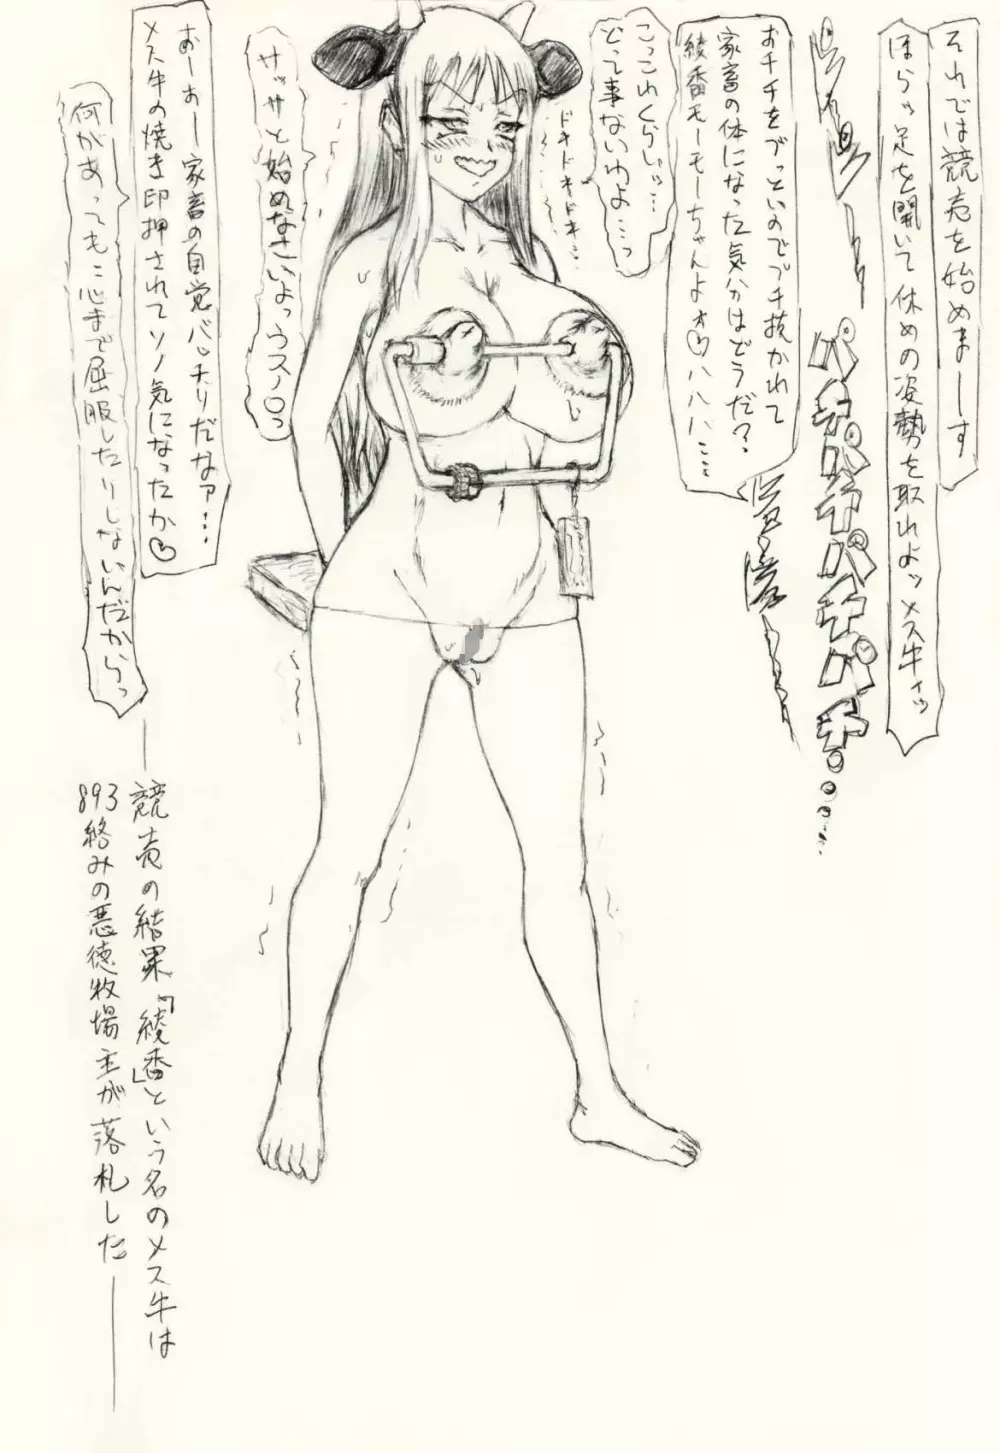 それでは競売を始めまーーす
ほらッ足を開いて休めの姿勢を取れよッメス牛ィッ
パチパチパチパチ・・・
おチチをブッといのでブチ抜かれて
家畜の体になった気分はどうだ?
綾香モーモーちゃんよォ♡ハハハハ……
こっこれくらいッ…
どって事ないわよ……っ
ドキドキドキドキ…
サッサと始めなさいよっウスノロっ
おーおー家畜の自覚バッチリだなァ…
メス牛の焼き印押されてソノ気になったか♡
何があっても心まで屈服したりしないんだからっ
―競売の結果「綾香」という名のメス牛は
893絡みの悪徳牧場主が落札した――